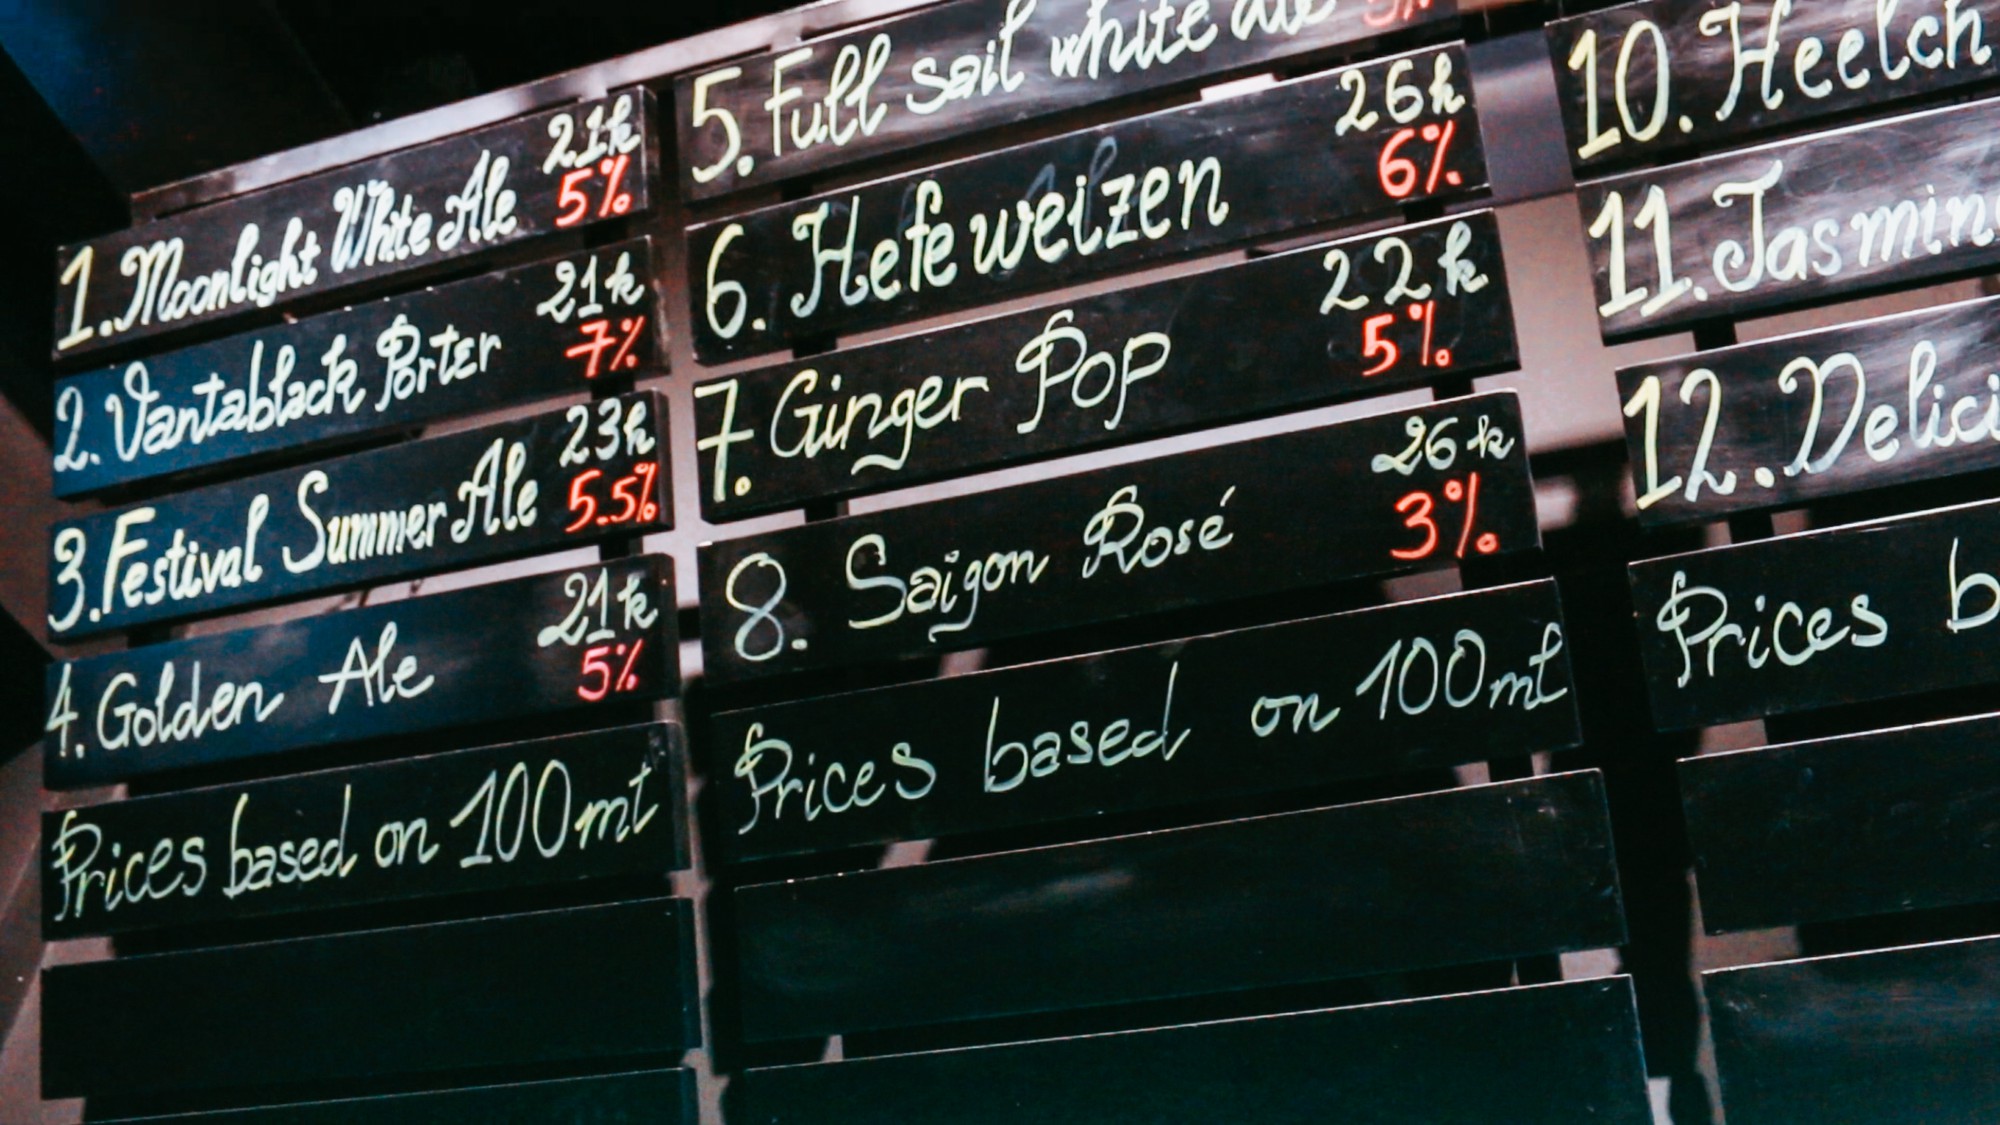 21k
1. Moonlight White Ale 5%
21k
2. Vantablack Porter 7%
23k
3. Festival Summer Ale 5.5%
21k
4. Golden Ale 5%
Prices based on 100ml
5. Full sail white ale 5%
26k
6. Hefeweizen 6%
22k
7. Ginger Pop 5%
26k
8. Saigon Rosé 3%
Prices based on 100ml
10. Heelch
11. Jasmin
12. Delici
Prices b